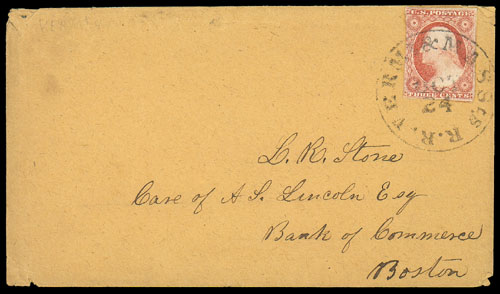 U.S. POSTAGE
THREE CENTS
VERMT & MASSTS R.R.
24
L. R. Stone
Care of A S. Lincoln Esq
Bank of Commerce
Boston